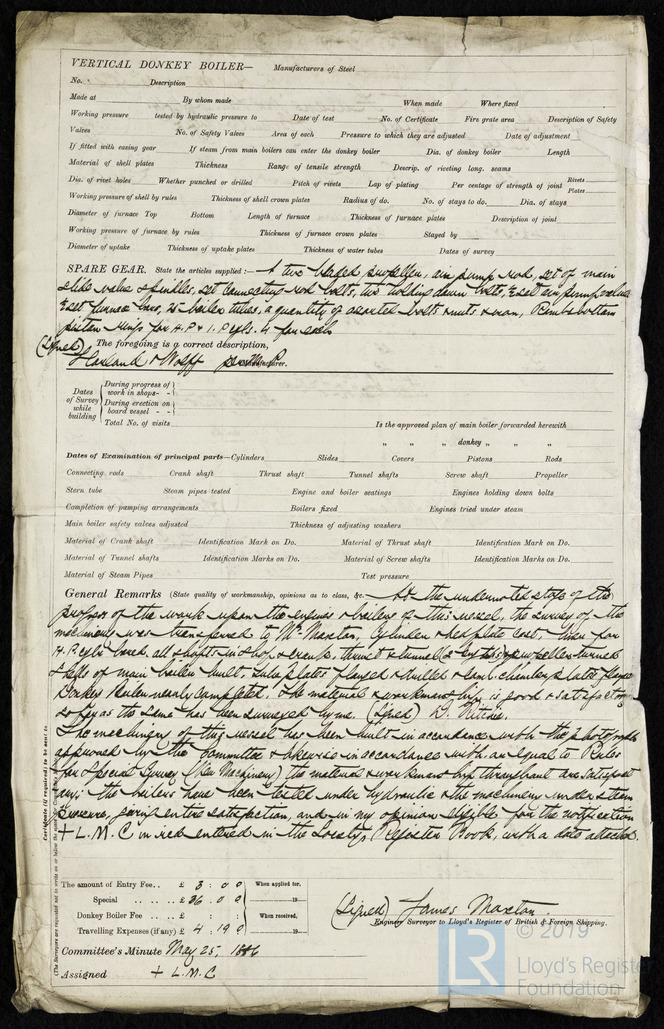 VERTICAL DONKEY BOILER— Manufacturers of Steel
No. Description
Made at By whom made When made Where fixed
Working pressure tested by hydraulic pressure to Date of test No. of Certificate Fire grate area Description of Safety
Valves No. of Safety Valves Area of each Pressure to which they are adjusted Date of adjustment
If fitted with easing gear If steam from main boilers can enter the donkey boiler Dia. of donkey boiler Length
Material of shell plates Thickness Range of tensile strength Descrip. of riveting long. seams
Dia. of rivet holes Whether punched or drilled Pitch of rivets Lap of plating Per centage of strength of joint Rivets Plates
Working pressure of shell by rules Thickness of shell crown plates Radius of do. No. of stays to do. Dia. of stays
Diameter of furnace Top Bottom Length of furnace Thickness of furnace plates Description of joint
Working pressure of furnace by rules Thickness of furnace crown plates Stayed by
Diameter of uptake Thickness of uptake plates Thickness of water tubes Dates of survey
SPARE GEAR. State the articles supplied :— A two bladed propeller, air pump rod, set of main
slide valve spindles, set connecting rod bolts, two holding down bolts, ½ set air pump valves
½ set furnace bars, 25 boiler tubes, a quantity of assorted bolts & nuts & iron,
piston rings for H.P & I.P cyls. for each
The foregoing is a correct description,
(Signed) Harland & Wolff Manufacturer.
Dates of Survey while building
During progress of work in shops - -
During erection on board vessel - -
Total No. of visits
Is the approved plan of main boiler forwarded herewith
„ „ „ donkey „ „ „
Dates of Examination of principal parts—Cylinders Slides Covers Pistons Rods
Connecting rods Crank shaft Thrust shaft Tunnel shafts Screw shaft Propeller
Stern tube Steam pipes tested Engine and boiler seatings Engines holding down bolts
Completion of pumping arrangements Boilers fixed Engines tried under steam
Main boiler safety valves adjusted Thickness of adjusting washers
Material of Crank shaft Identification Mark on Do. Material of Thrust shaft Identification Mark on Do.
Material of Tunnel shafts Identification Marks on Do. Material of Screw shafts Identification Marks on Do.
Material of Steam Pipes Test pressure
General Remarks (State quality of workmanship, opinions as to class, &c.— At the undernoted state of the
progress of the work upon the engines & boilers of this vessel, the survey of the
machinery was transferred to Mr. Maxton, Cylinders & bedplate cast, liner for
H.P cyl. bored, all shafts in shop & crank, thrust & tunnel turned
shells of main boiler built, tube plates flanged & drilled & comb. chamber plates flanged
Donkey Boiler nearly completed. The material & workmanship is good & satisfactory
so far as the same has been surveyed by me. (Signed) D. Ritchie.
The machinery of this vessel has been built in accordance with the photographs
approved by the Committee & likewise in accordance with, an equal to Rules
for Special Survey (New Machinery) the material & workmanship throughout are satisfact
ory; the boilers have been tested under hydraulic & the machinery under steam
pressure, giving entire satisfaction, and in my opinion eligible for the notification
+ L.M.C in red entered in the Society's Register Book, with a date attached.
Certificate (if required) to be sent to
The amount of Entry Fee .. £ 3 : 0 0 When applied for,
Special .. .. £ 36 : 0 0 19
Donkey Boiler Fee .. .. £ : : When received,
Travelling Expenses (if any) £ 4 : 19 0 19
(Signed) James Maxton.
Engineer Surveyor to Lloyd's Register of British & Foreign Shipping.
Committee's Minute May 25, 1886
Assigned + L.M.C
© 2019
LR
Lloyd's Register
Foundation